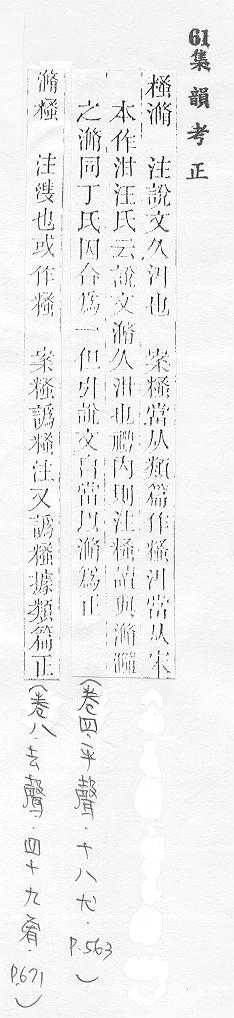 61集韻考正
糔滫 注說文久也 案糔當从類篇作糔當从宋
本作泔汪氏云說文滫久泔也禮內則注糔讀與滫瀡
之滫同丁氏因合爲一但引說文自當以滫爲正
(卷四·平聲·十八尤·P.563)
滫糔 注溲也或作糔 案糔譌注又譌據類篇正
(卷八·去聲·四十九宥·P.671)